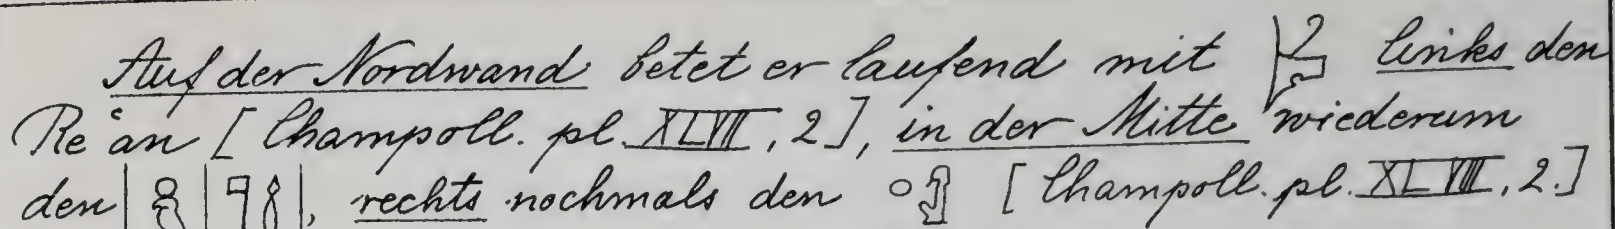 Auf der Nordwand betet er laufend mit links den
Reʿ an [Champoll. pl. XLVII, 2], in der Mitte wiederum
den, rechts nochmals den [Champoll. pl. XLVIII, 2.]